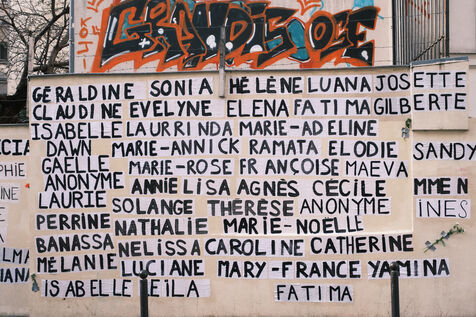 GÉRALDINE SONIA HÉLÈNE LUANA JOSETTE
CLAUDINE EVELYNE ELENA FATIMA GILBERTE
ISABELLE LAURRINDA MARIE-ADELINE
DAWN MARIE-ANNICK RAMATA ELODIE SANDY
GAELLE MARIE-ROSE FRANÇOISE MAEVA
ANONYME ANNIE LISA AGNÈS CÉCILE
LAURIE SOLANGE THÉRÈSE ANONYME INES
PERRINE NATHALIE MARIE-NOËLLE
BANASSA NELISSA CAROLINE CATHERINE
MÉLANIE LUCIANE MARY-FRANCE YAMINA
ISABELLE LEILA FATIMA